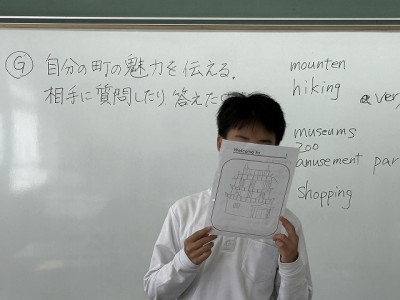 Ⓖ 自分の町の魅力を伝える.
相手に質問したり 答えた
mounten
hiking
museums
zoo
amusement par
shopping
Welcome to